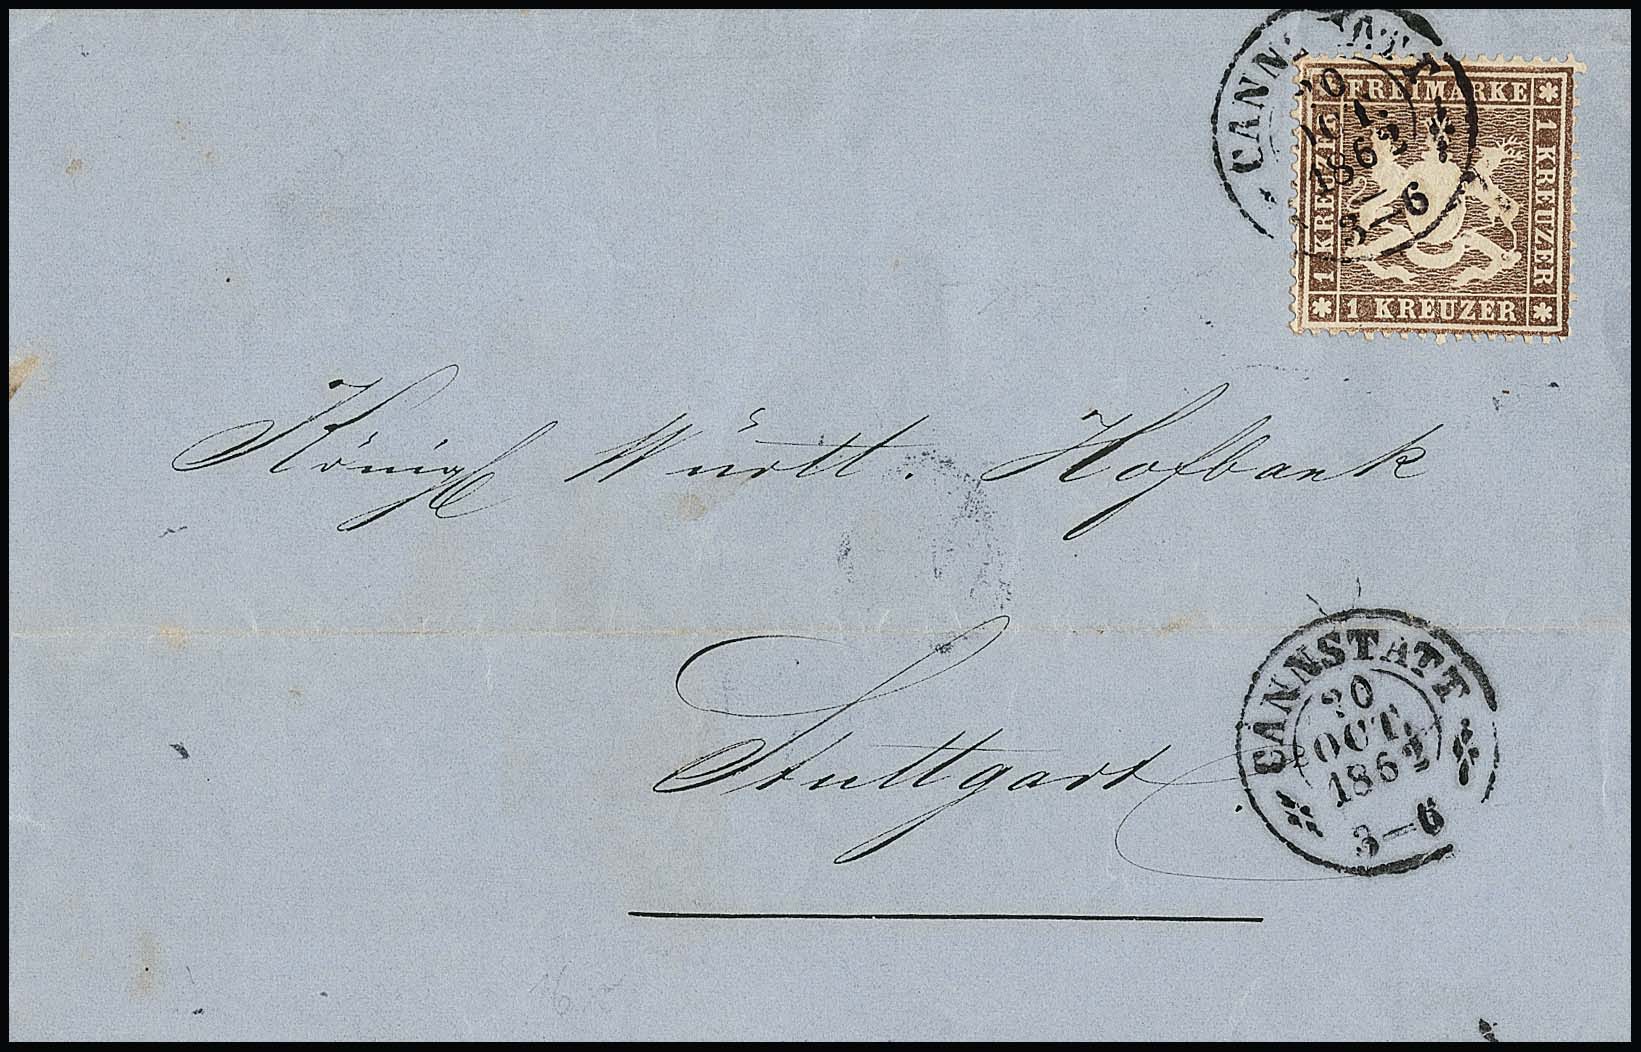 CANNSTATT
20
OCT.
1862
3—6
FREIMARKE
1 KREUZER
1 KREUZER
1 KREUZER
Königl Württ. Hofbank
Stuttgart
CANNSTATT
20
OCT.
1862
3—6